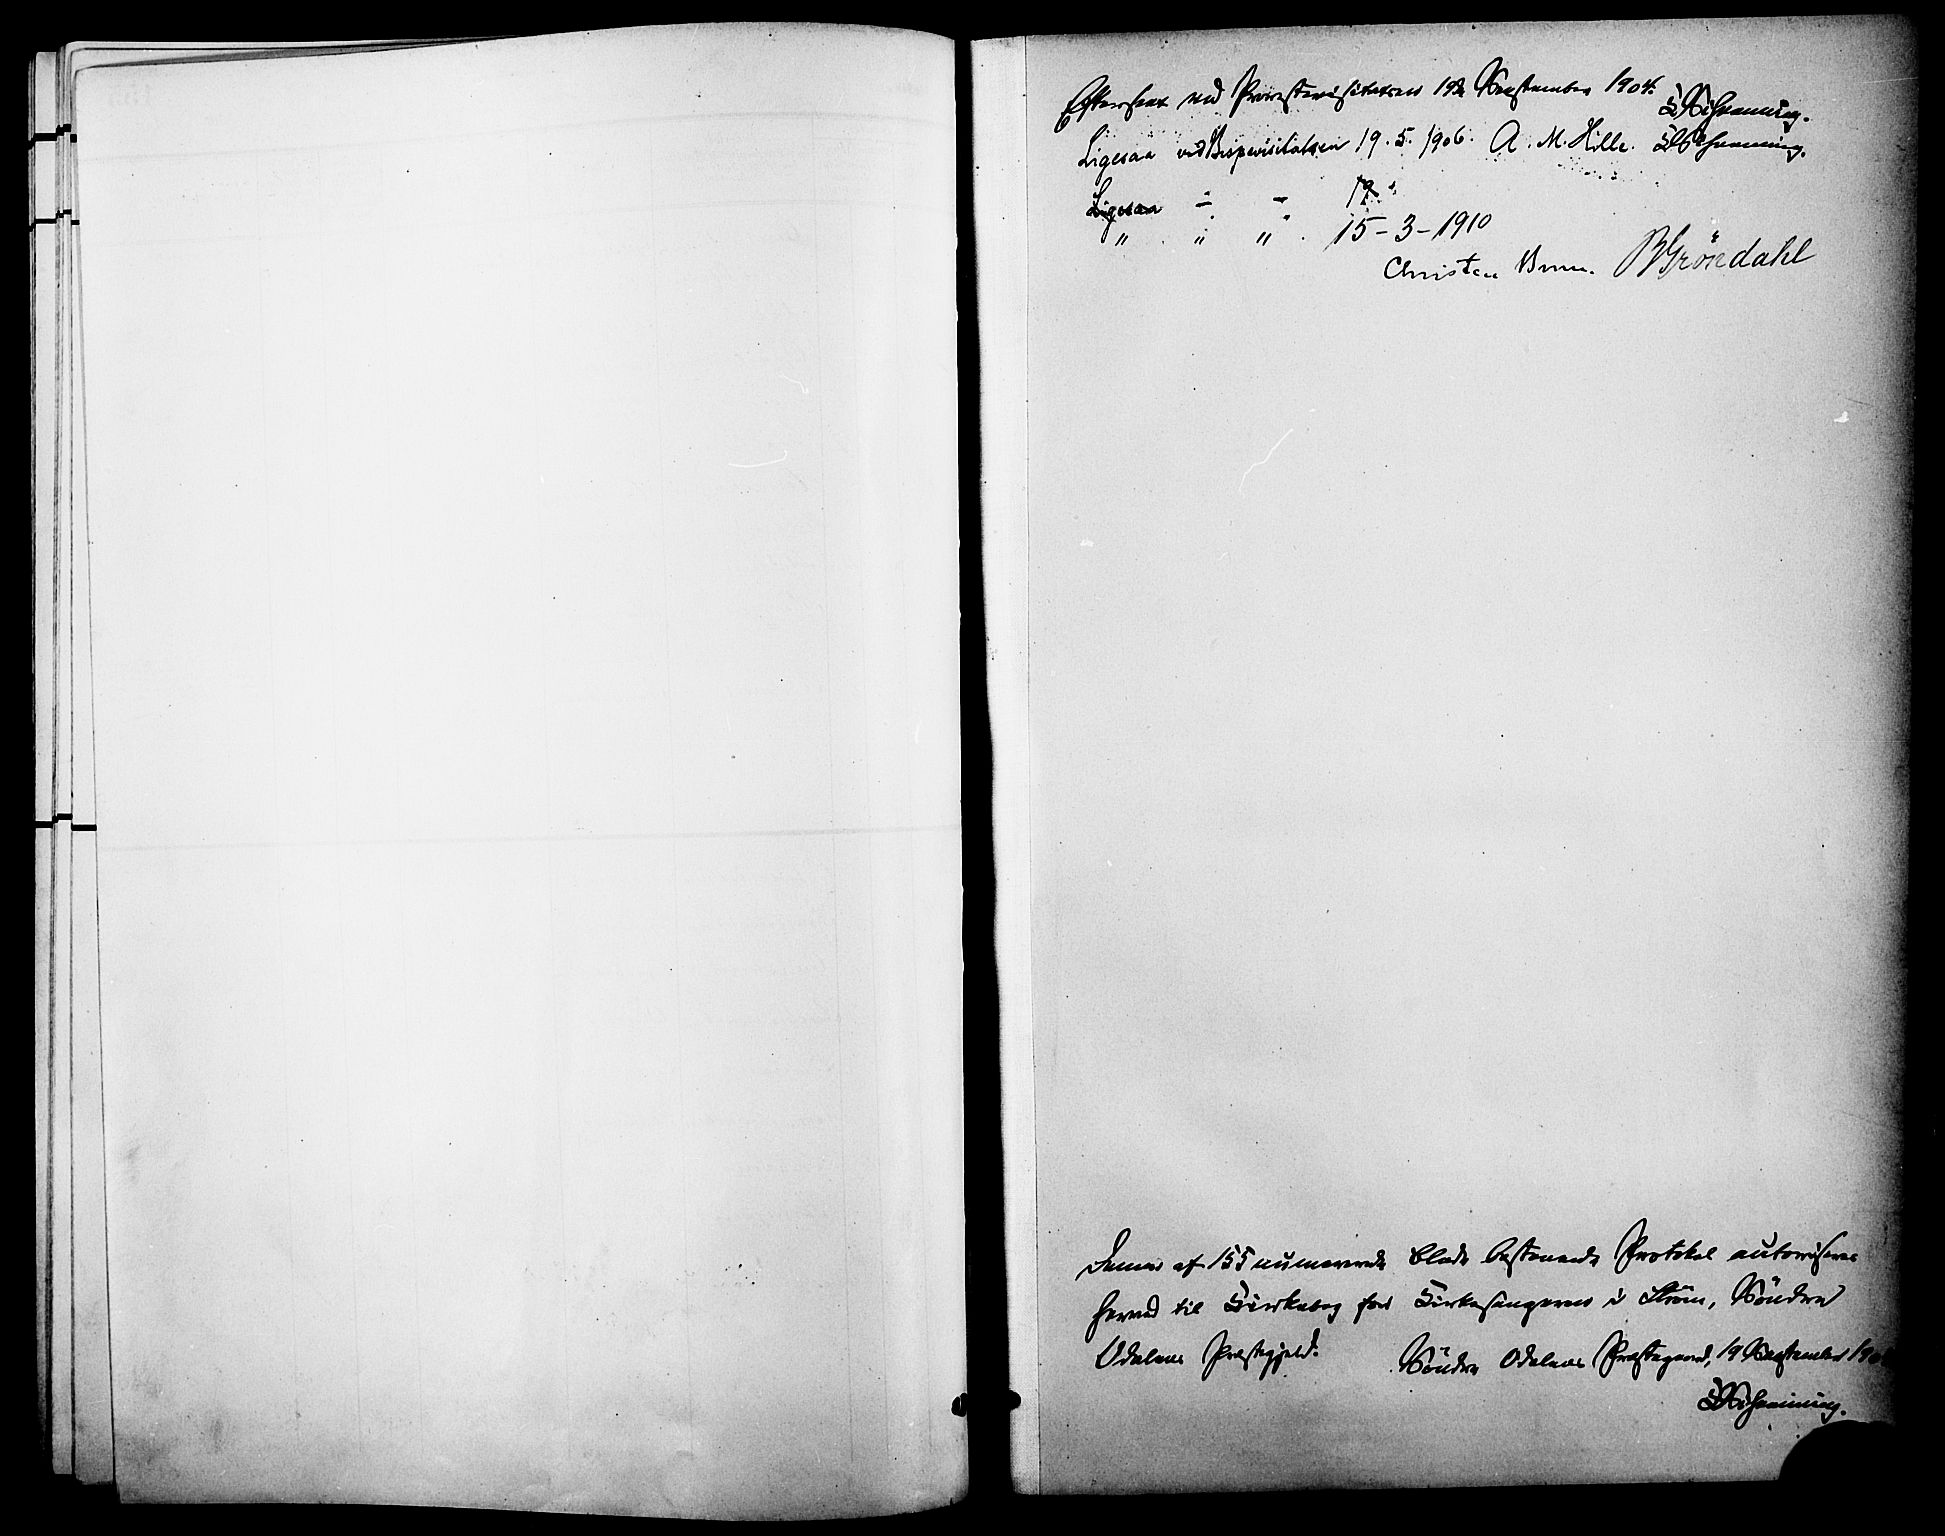 Efterseet ved Provstevisitatsen 19de September 1904.
Ligesaa ved Bispevisitatsen 19. 5. 1906. A. M. Hille.
Ligesaa " " 19
" " " 15-3-1910
Christen Brun. B Gröndahl
Denne af 155 numererede Blade bestaaende Protokol autoriseres
herved til Kirkebog for Kirkesangeren i Strøm, Söndre
Odalens Præstegjeld. Söndre Odalens Præstegaard, 19 September